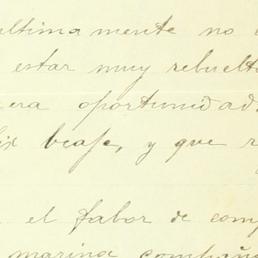 ultima mente no
estar muy rebuelt
era oportunidad
ix beafe, y que r
el fabor de comp
marina compañ